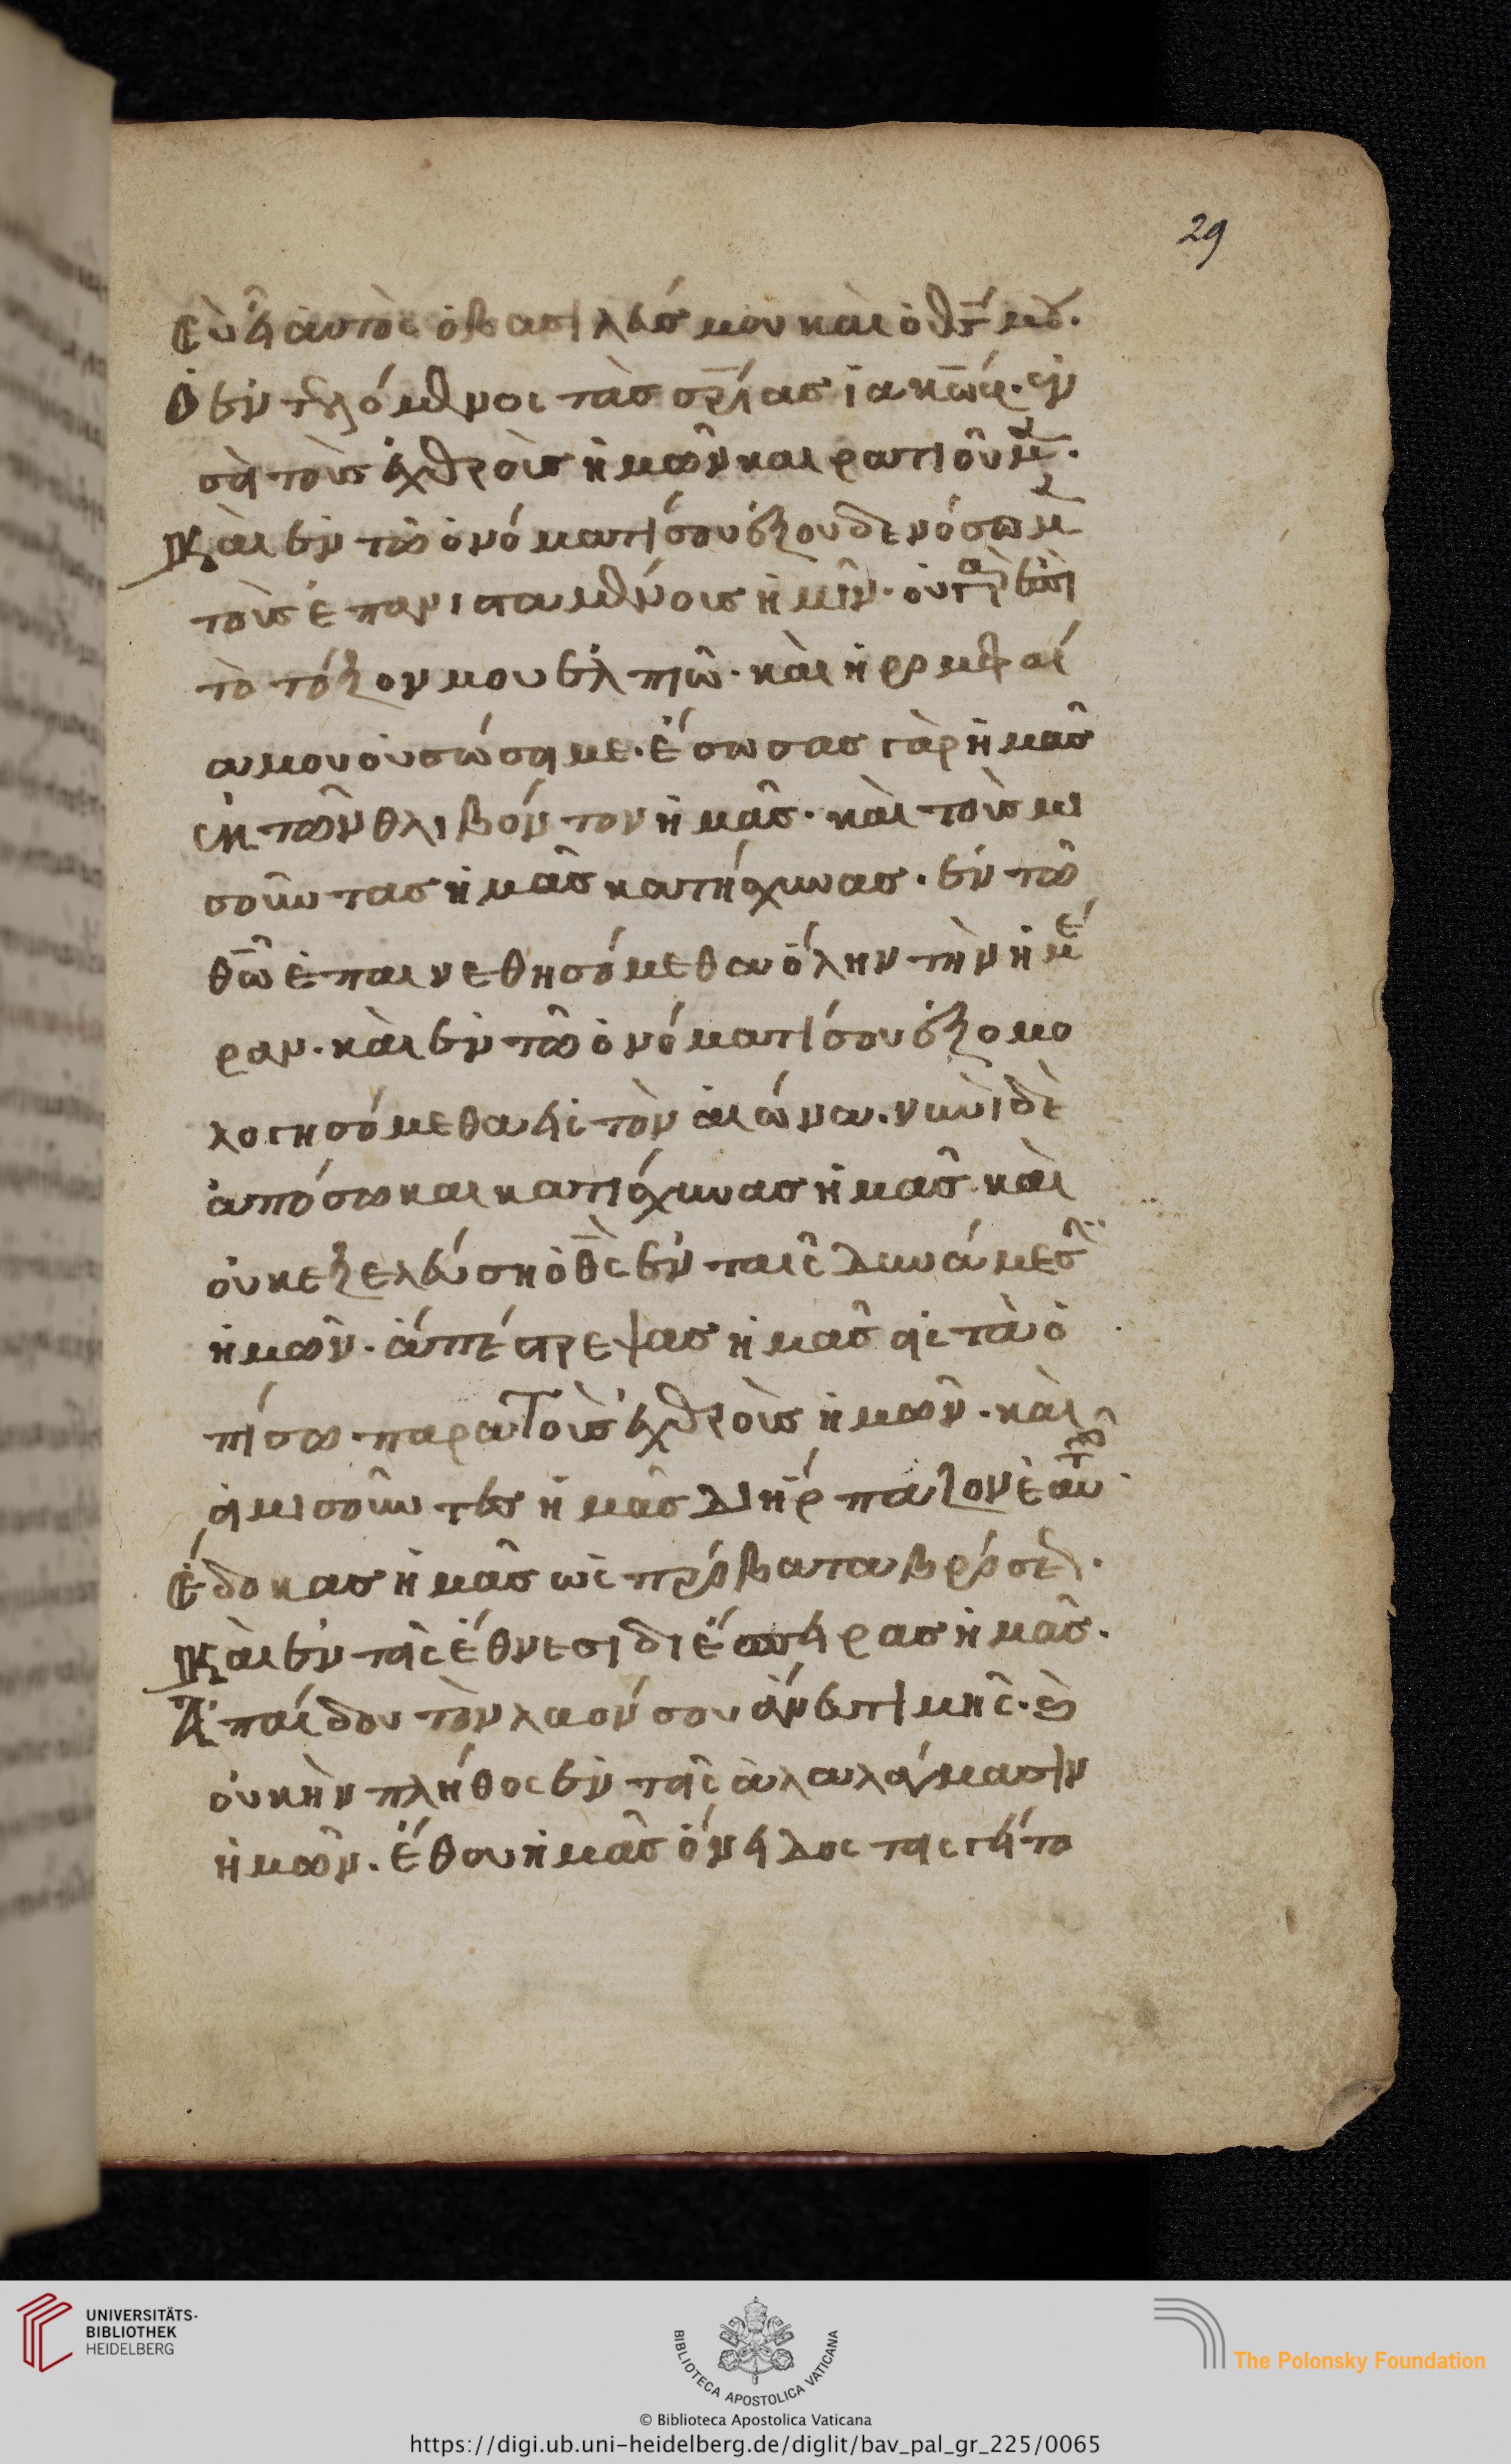 29
Σὺ εἶ αὐτὸς ὁ βασιλεύς μου καὶ ὁ θς μου.
Ὁ ἐντελόμενος τὰς σρίας ἰακώβ. ἐν
σὲ τοὺς ἐχθροὺς ἡμῶν κερατιοῦμ.
Καὶ ἐν τῶ ὀνόματί σου ἐξουδενόσωμ
τοὺς ἐπανισταμένους ἡμῖν. οὐ γὰρ ἐπὶ
τὸ τόξον μου ἐλπιῶ. καὶ ἡ ρομφαί
α μου οὐ σώσει με. ἔσωσας γὰρ ἡμᾶς
ἐκ τῶν θλιβόντον ἡμᾶς. καὶ τοὺς μι
σοῦντας ἡμᾶς κατήσχυνας. ἐν τῶ
θῶ ἐπαινεθησόμεθα ὅλην τὴν ἡμέ
ραν. καὶ ἐν τῶ ὀνόματί σου ἐξομο
λογησόμεθα εἰς τὸν αἰώνα. νυνὶ δὲ
ἀπόσω καὶ κατίσχυνας ἡμᾶς καὶ
οὐκ ἐξελεύση ὁ θς ἐν ταῖς δυνάμεσ
ἡμῶν. ἀπέστρεψας ἡμᾶς εἰς τὰ ὀ
πίσω παρα τοὺς ἐχθροὺς ἡμῶν. καὶ
οἱ μισοῦντες ἡμᾶς διήρπαζον ἑαυτῶ
Ἔδοκας ἡμᾶς ὡς πρόβατα βρόσε.
Καὶ ἐν τοῖς ἔθνεσι διέσπειρας ἡμᾶς.
Ἀπέδου τὸν λαόν σου ἄνευ τιμῆς. καὶ
οὐκ ἦν πλήθος ἐν τοῖς ἀλαλάγμασιν
ἡμῶν. ἔθου ἡμᾶς ὄνειδος τοῖς γείτο
UNIVERSITÄTS-
BIBLIOTHEK
HEIDELBERG
BIBLIOTECA APOSTOLICA VATICANA
The Polonsky Foundation
© Biblioteca Apostolica Vaticana
https://digi.ub.uni-heidelberg.de/diglit/bav_pal_gr_225/0065